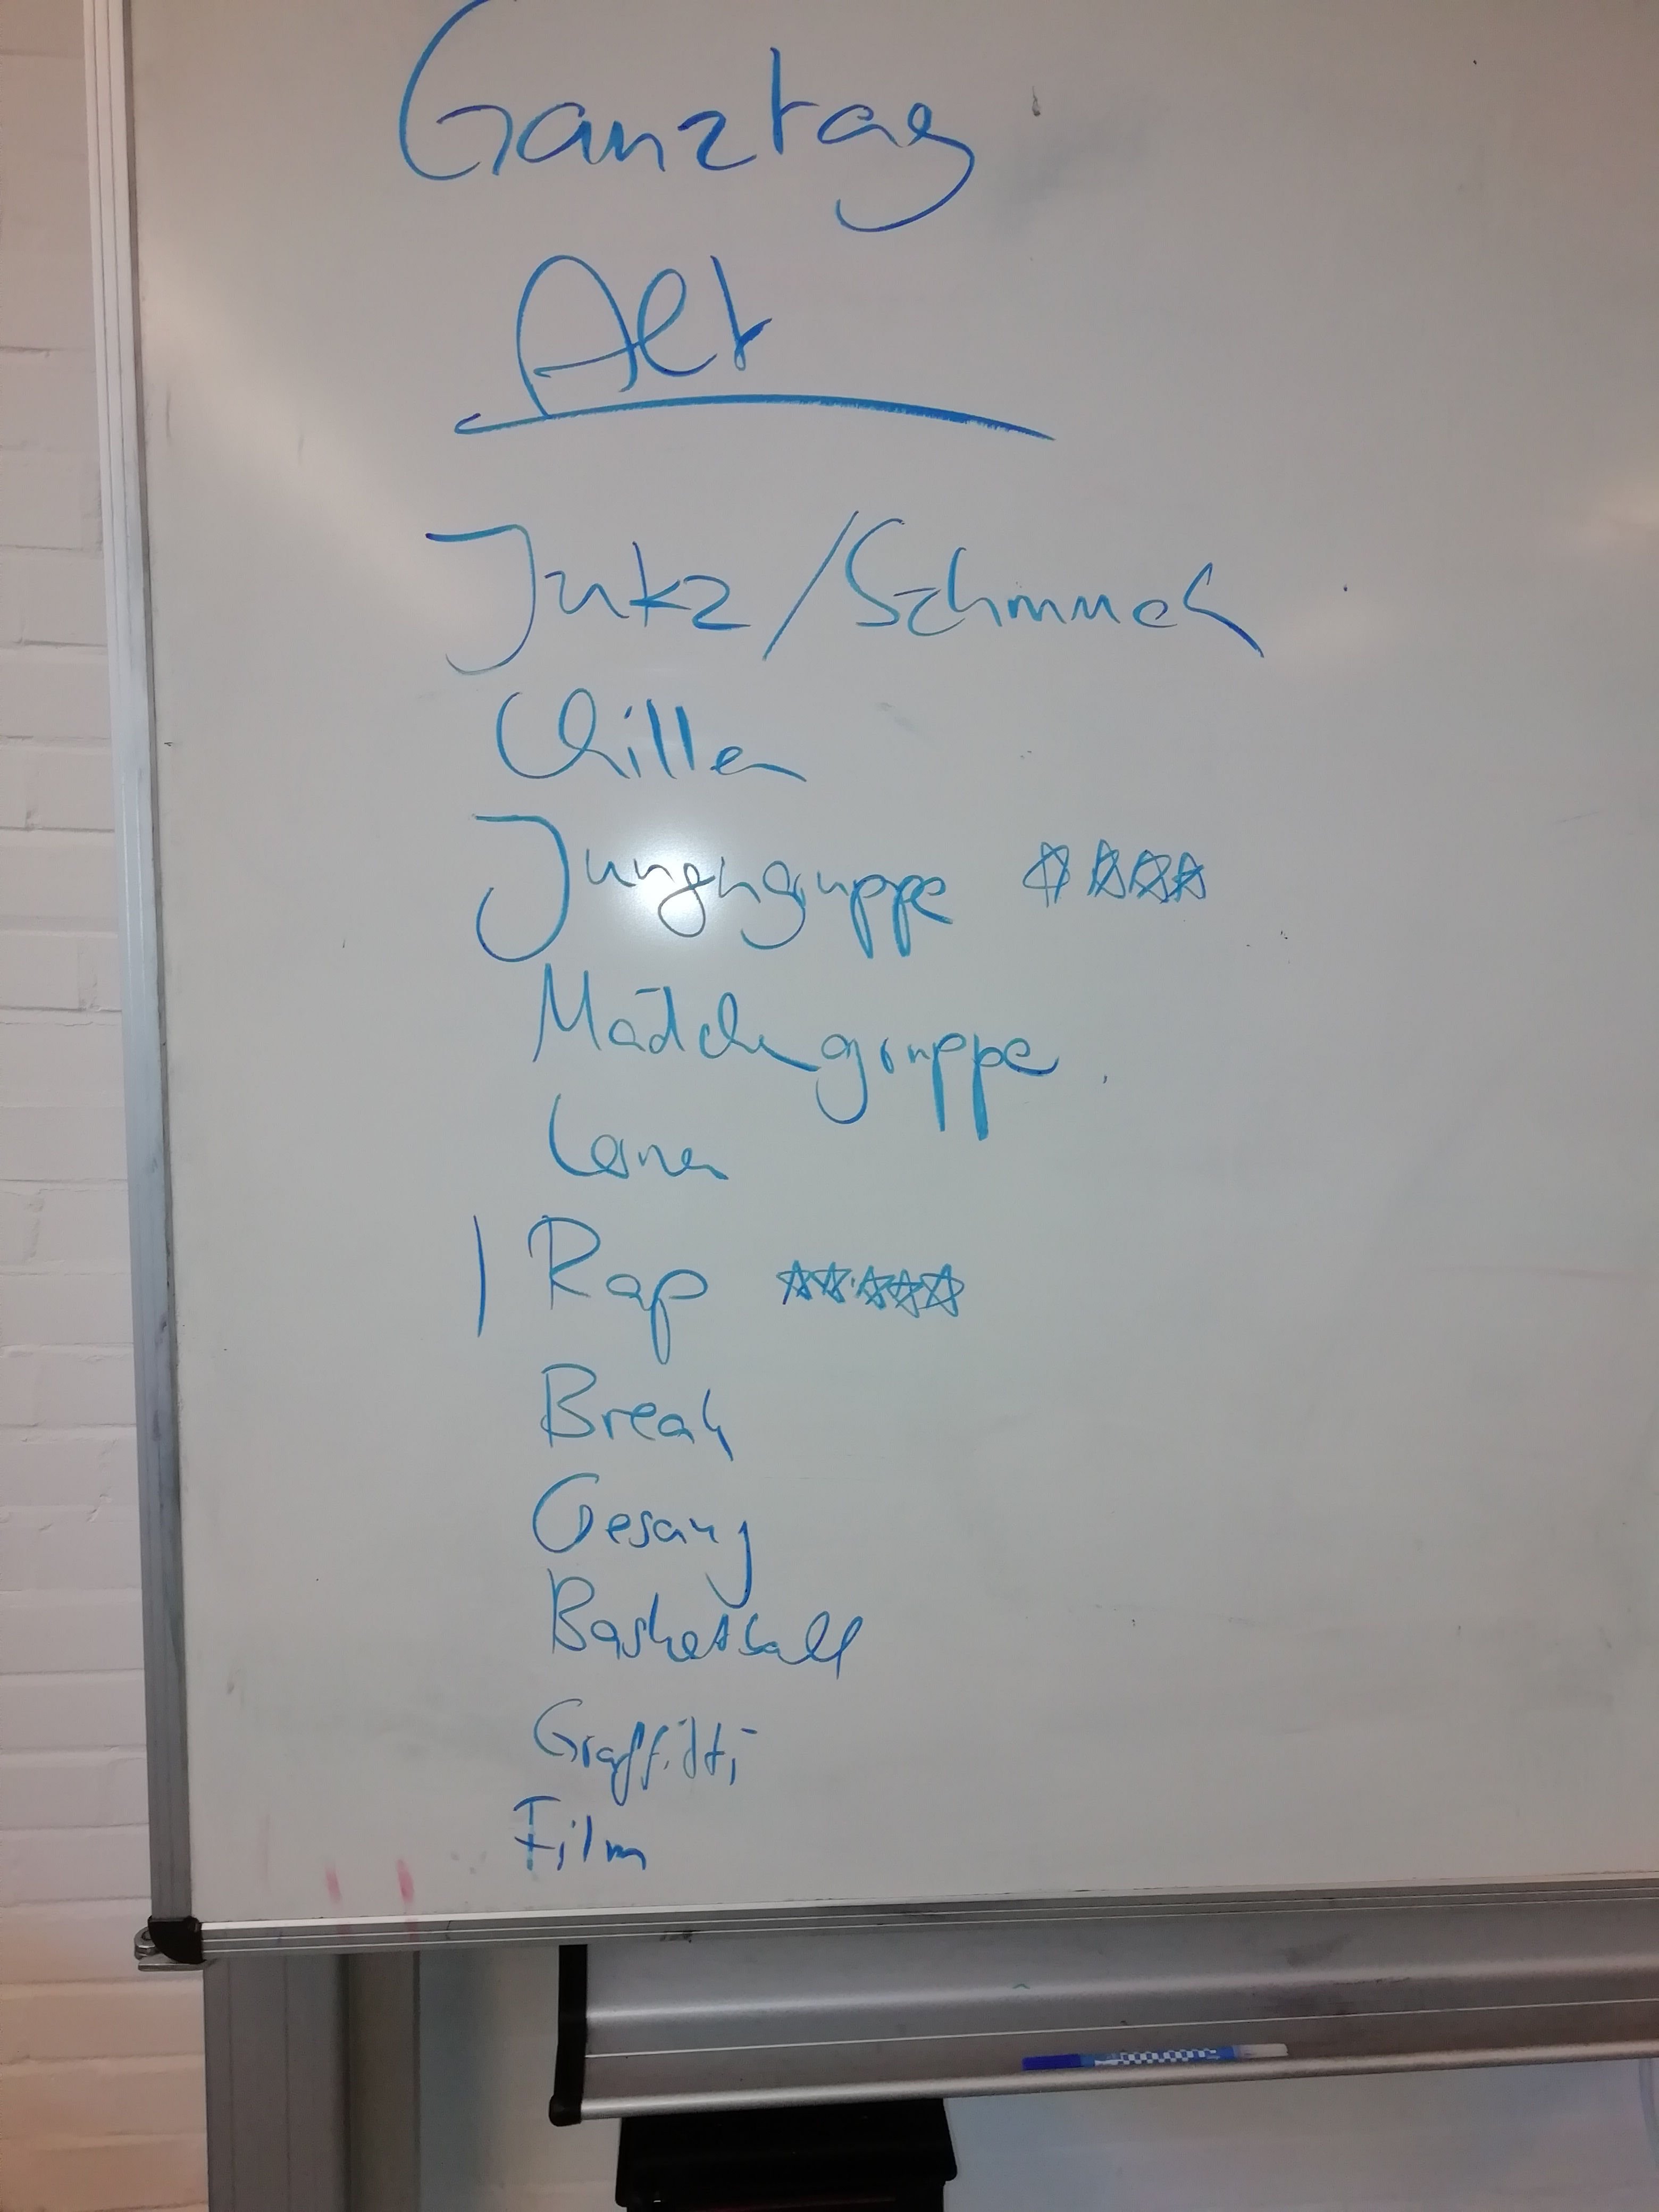 Ganztag
Alt
Jukz/Schmuck
Chillen
Jungngruppe ☆☆☆☆
Mädchengruppe
Rap ☆☆☆☆☆
Break
Gesang
Basketball
Graffitti
Film